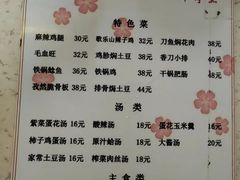 特色菜
麻辣鸡腿 30元 歌乐山辣子鸡 32元 刀鱼焖花肉 38元
毛血旺 32元 鸡胗焖土豆 38元 香刀小排 40元
铁锅鲶鱼 36元 铁锅鸡 38元 干锅肥肠 48元
孜然脆骨板 38元 排骨焗土豆 44元
汤类
紫菜蛋花汤 16元 酸辣汤 18元 蛋花玉米羹 16元
柿子鸡蛋汤 16元 原汁蛤汤 18元 大酱汤 20元
家常土豆汤 16元 榨菜肉丝汤 18元
主食类